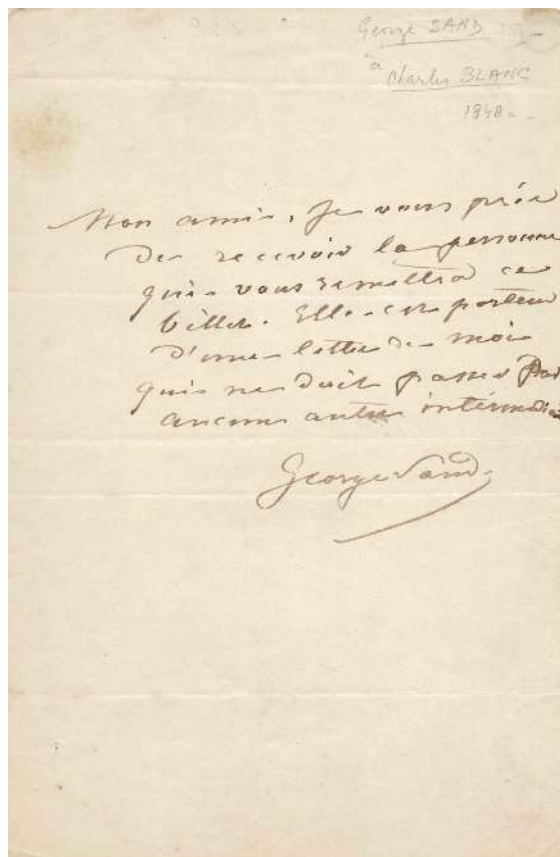 George SAND
à
Charles BLANC
1848
Mon amis, Je vous prie
de recevoir la personne
qui vous remettra ce
billet. Elle est porteur
d'une lettre de moi
qui ne doit passer par
aucun autre intermédiaire
George Sand